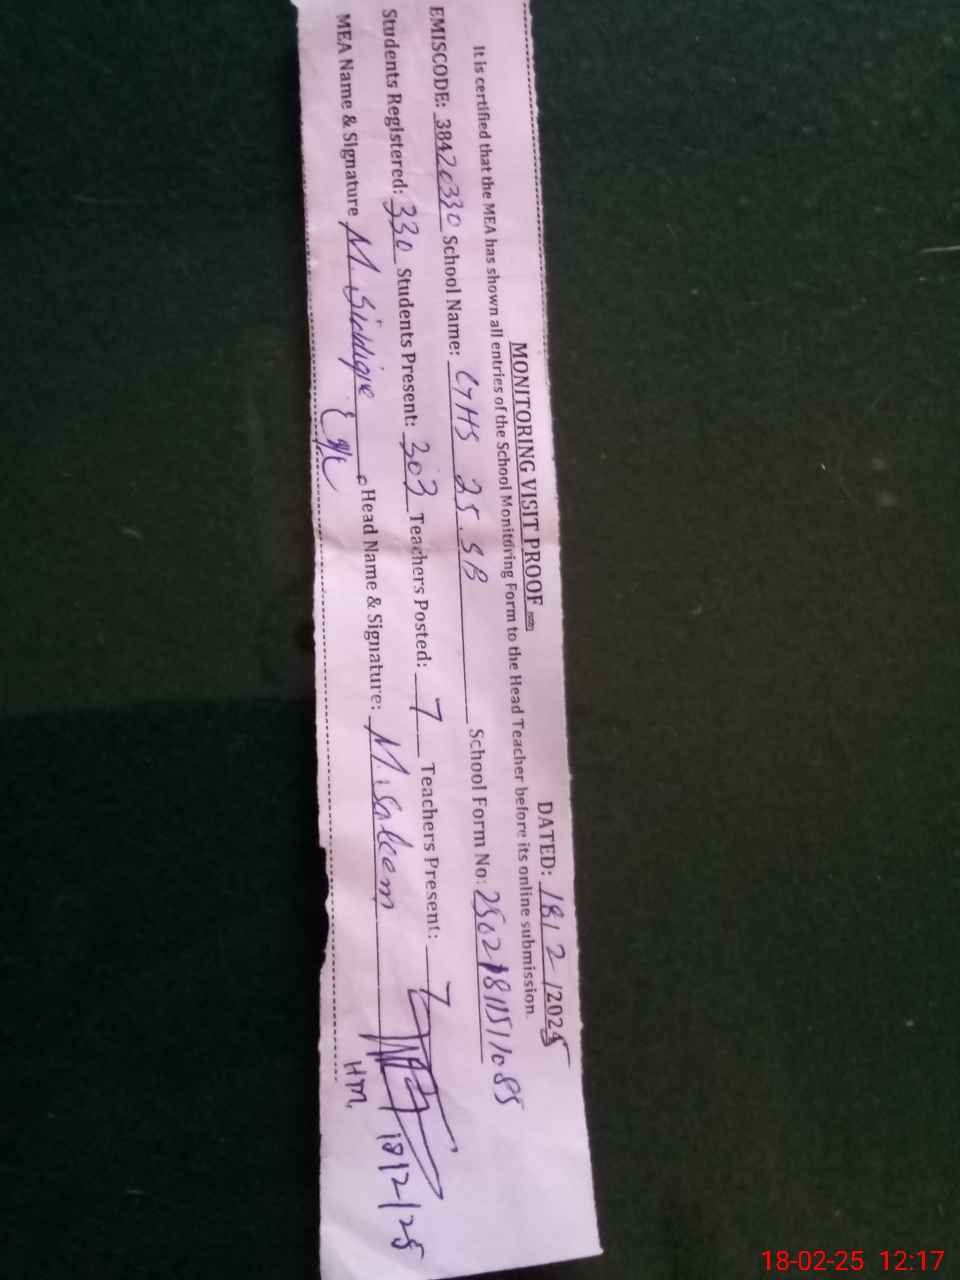 MONITORING VISIT PROOF
DATED: 18/2/2025
It is certified that the MEA has shown all entries of the School Monitoring Form to the Head Teacher before its online submission.
EMISCODE: 38420330 School Name: GHS 25.SB School Form No:
Students Registered: 330 Students Present: 303 Teachers Posted: 7 Teachers Present: 7
MEA Name & Signature M. Siddique Head Name & Signature: M. Saleem
HM. 18/2/25
18-02-25 12:17